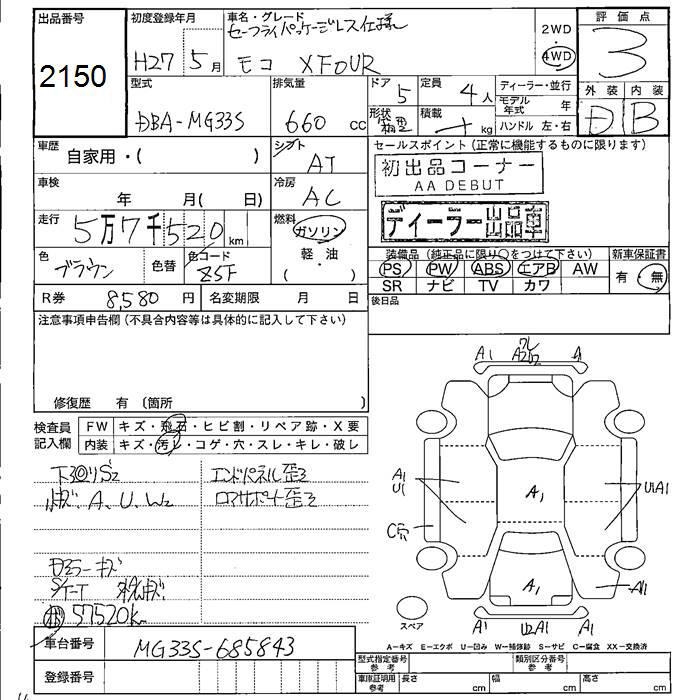 出品番号
2150
初度登録年月
H27 5月
車名・グレード
モコ XFOUR
2WD
4WD
評価点
3
外装 内装
D B
型式
DBA-MG33S
排気量
660 cc
ドア
5
定員
4人
形状
箱型
積載
kg
ディーラー・並行
モデル年式 年
ハンドル 左・右
車歴
自家用・( )
シフト
AT
セールスポイント(正常に機能するものに限ります)
初出品コーナー
AA DEBUT
ディーラー出品車
車検
年 月( 日)
冷房
AC
走行
5万7千520km
燃料
ガソリン
・
軽・油
( )
色
ブラウン
色替
色コード
Z5F
装備品(純正品に限り○をつけて下さい)
PS PW ABS エアB AW
SR ナビ TV カワ
新車保証書
有 無
R券 8,580円
名変期限 月 日
後日品
注意事項申告欄(不具合内容等は具体的に記入して下さい)
修復歴 有 〔箇所 〕
検査員
記入欄
FW キズ・飛石・ヒビ割・リペア跡・X要
内装 キズ・汚レ・コゲ・穴・スレ・キレ・破レ
下回りS2
エンドパネル歪ミ
A、U、W2
ロアサポート歪ミ
57520k
車台番号
MG33S-685843
登録番号
A1
A1
A1
U1
A1
U1A1
C穴
A1
A1
スペア
A1
U2A1
A1
A-キズ E-エクボ U-凹み W-補修跡 S-サビ C-腐食 XX-交換済
型式指定番号
参考
類別区分番号
参考
車庫証明用
参考
長さ cm
幅 cm
高さ cm